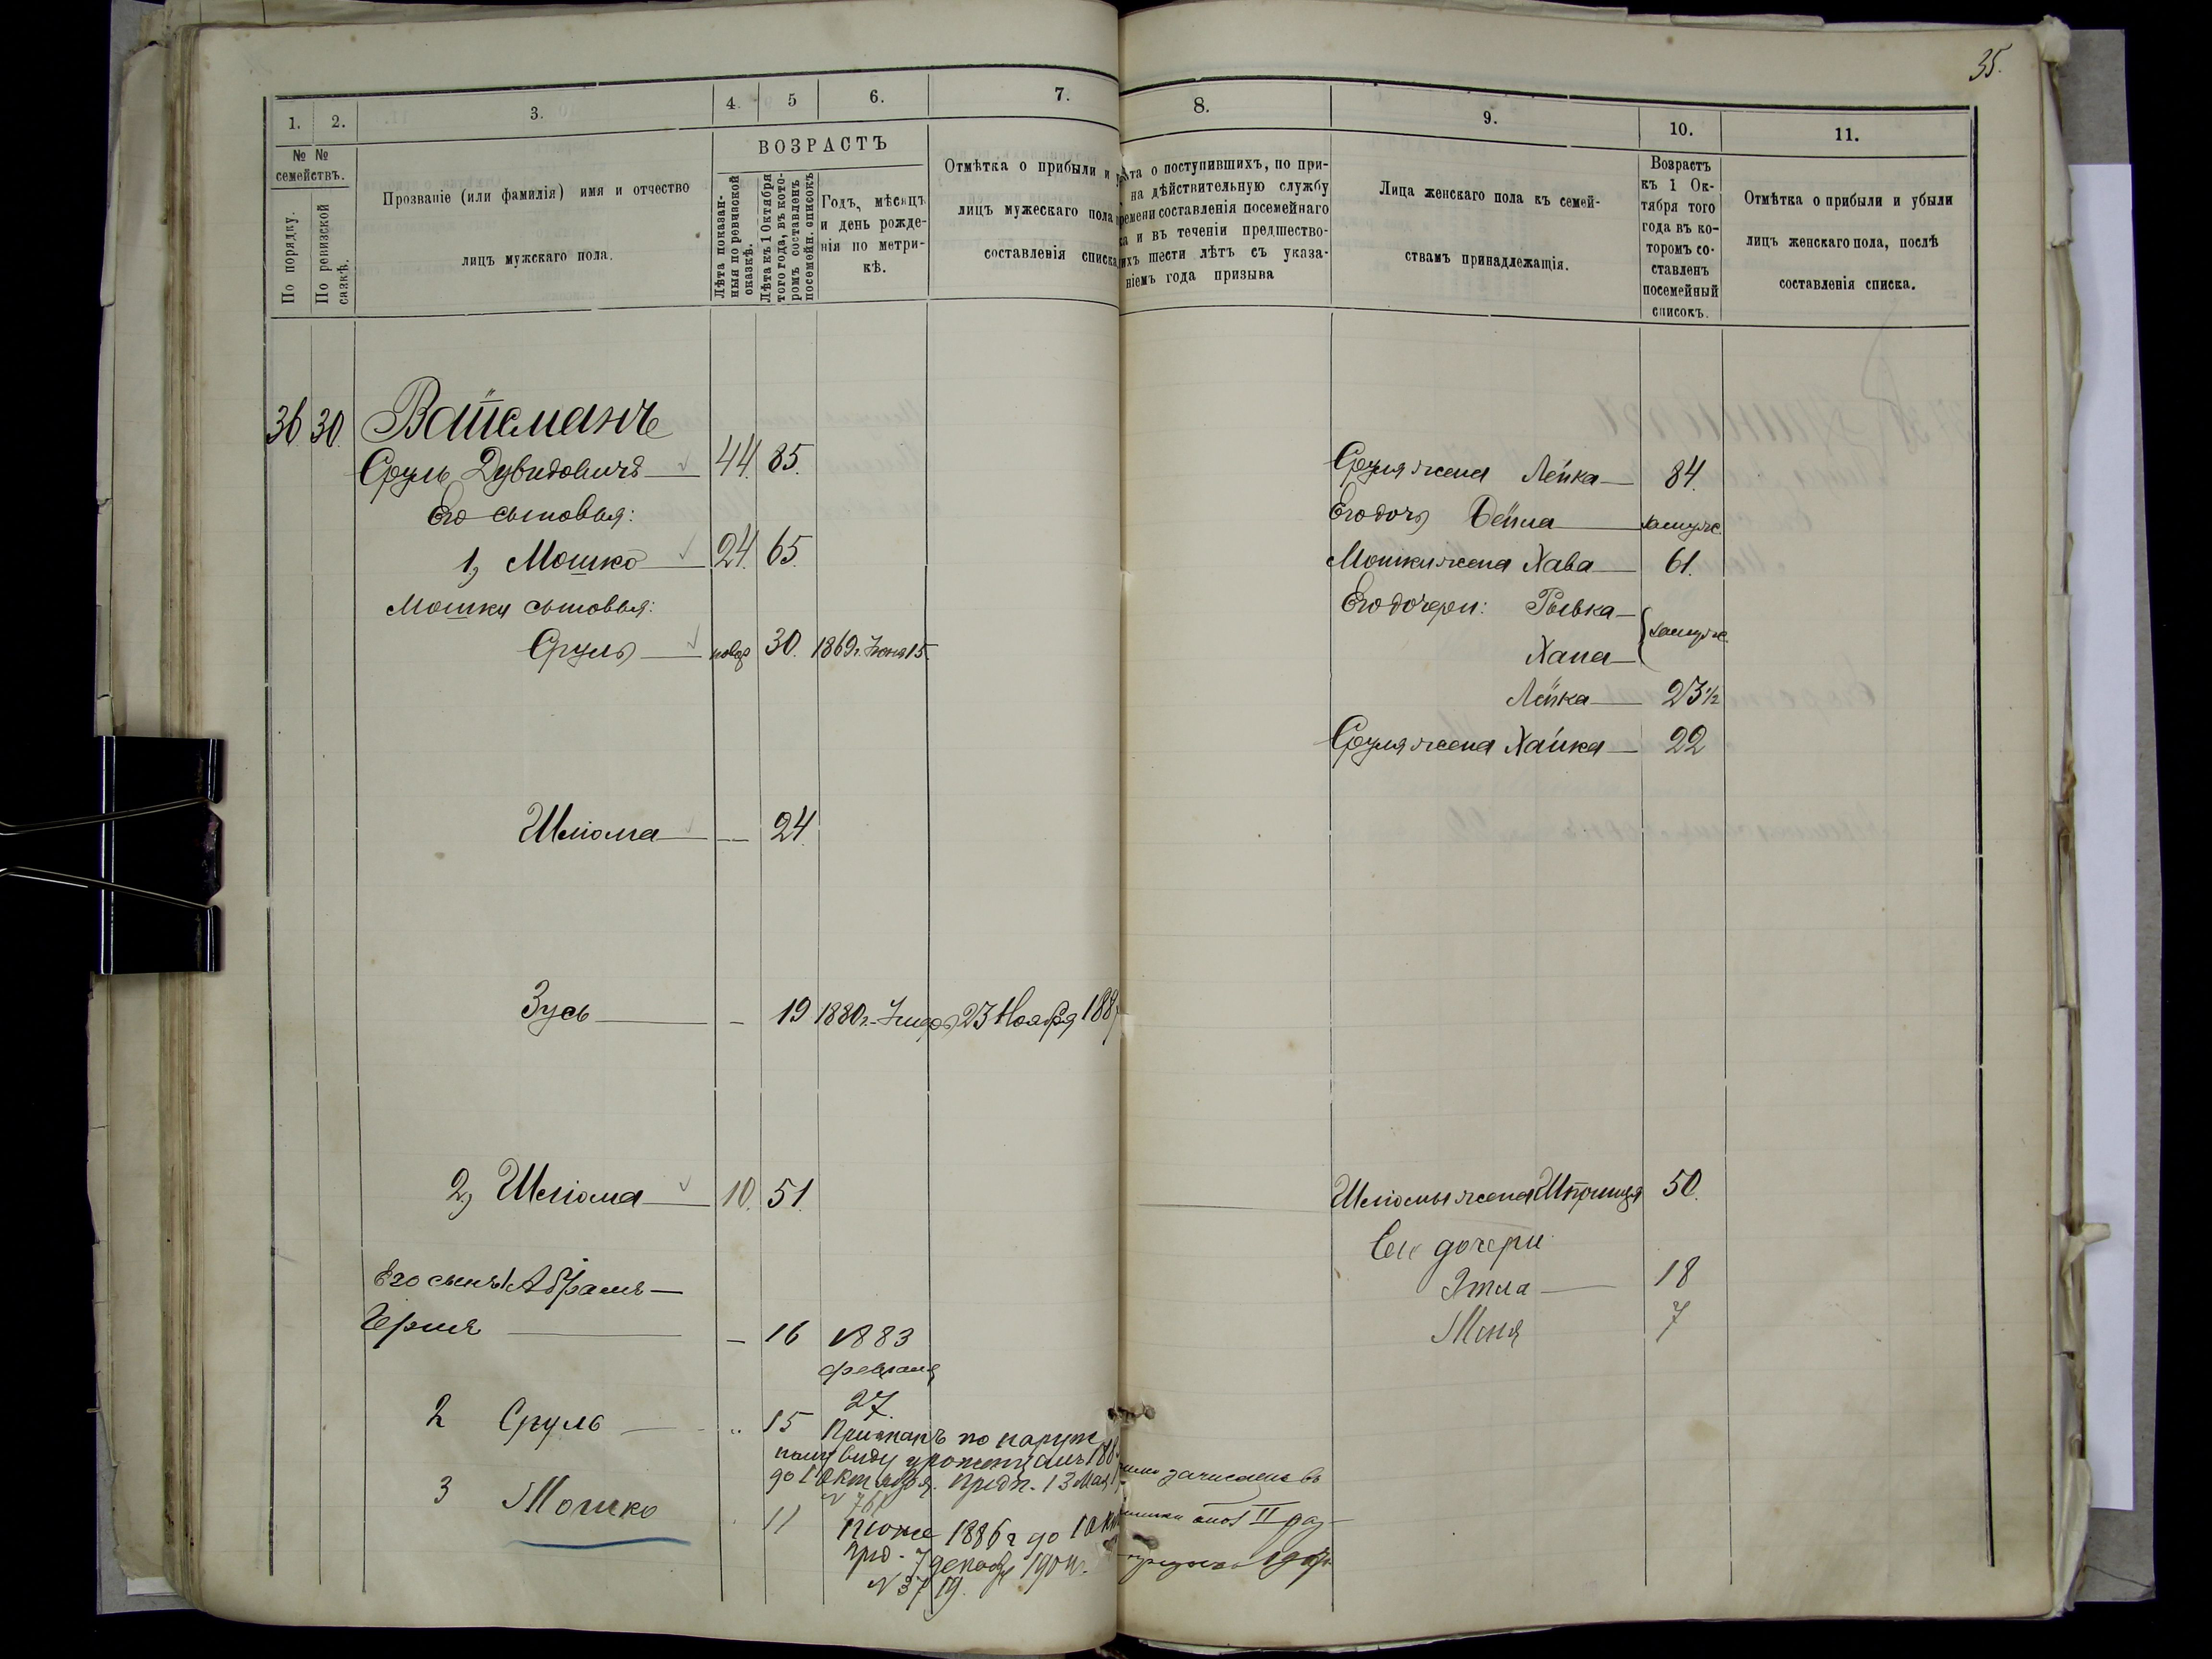 35.
1.
2.
3.
4.
5
6.
7.
8.
9.
10.
11.
№ №
семействъ.
По порядку.
По ревизской
сказкѣ.
Прозваніе (или фамилія) имя и отчество
лицъ мужскаго пола.
ВОЗРАСТЪ
Лѣта показан-
ныя по ревизской
сказкѣ.
Лѣта къ 1 Октября
того года, въ кото-
ромъ составленъ
посемейн. списокъ
Годъ, мѣсяцъ
и день рожде-
нія по метри-
кѣ.
Отмѣтка о прибыли и у
лицъ мужескаго пола
составленія списка
та о поступившихъ, по при-
на дѣйствительную службу
ремени составленія посемейнаго
ка и въ теченіи предшество-
ихъ шести лѣтъ съ указа-
ніемъ года призыва
Лица женскаго пола къ семей-
ствамъ принадлежащія.
Возрастъ
къ 1 Ок-
тября того
года въ ко-
торомъ со-
ставленъ
посемейный
списокъ.
Отмѣтка о прибыли и убыли
лицъ женскаго пола, послѣ
составленія списка.
36. 30. Вайсманъ
Сруль Дувидовичъ 44. 85. Сруля жена Лейка 84.
Его сыновья: Его дочь Бейла замуж.
1, Мошко 24. 65. Мошки жена Хава 61.
Мошки сыновья: Его дочери: Рывка
Сруль новор 30. 1869 г. Іюня 15. Хана замуж.
Лейка 23 1/2
Сруля жена Хайка 22
Шлiома — 24.
Зусь — 19 1880 г. Умеръ 23 Ноября 188
2, Шлiома 10. 51. Шлiомы жена Шпринця 50.
Его дочери
Его сынъ 1 Абрамъ Этля 18
Гершя — 16 1883 Меня 7
февраля
27.
2 Сруль 15 Признанъ по наруж
ному виду урожденцемъ 188
до 1 Октября. Предп. 13 Мая зачисленъ въ
3 Мошко № 761
11 тоже 1886 г до 1 Окт II раз
пред. 7 декабр 1904 г. 190
№ 3719.